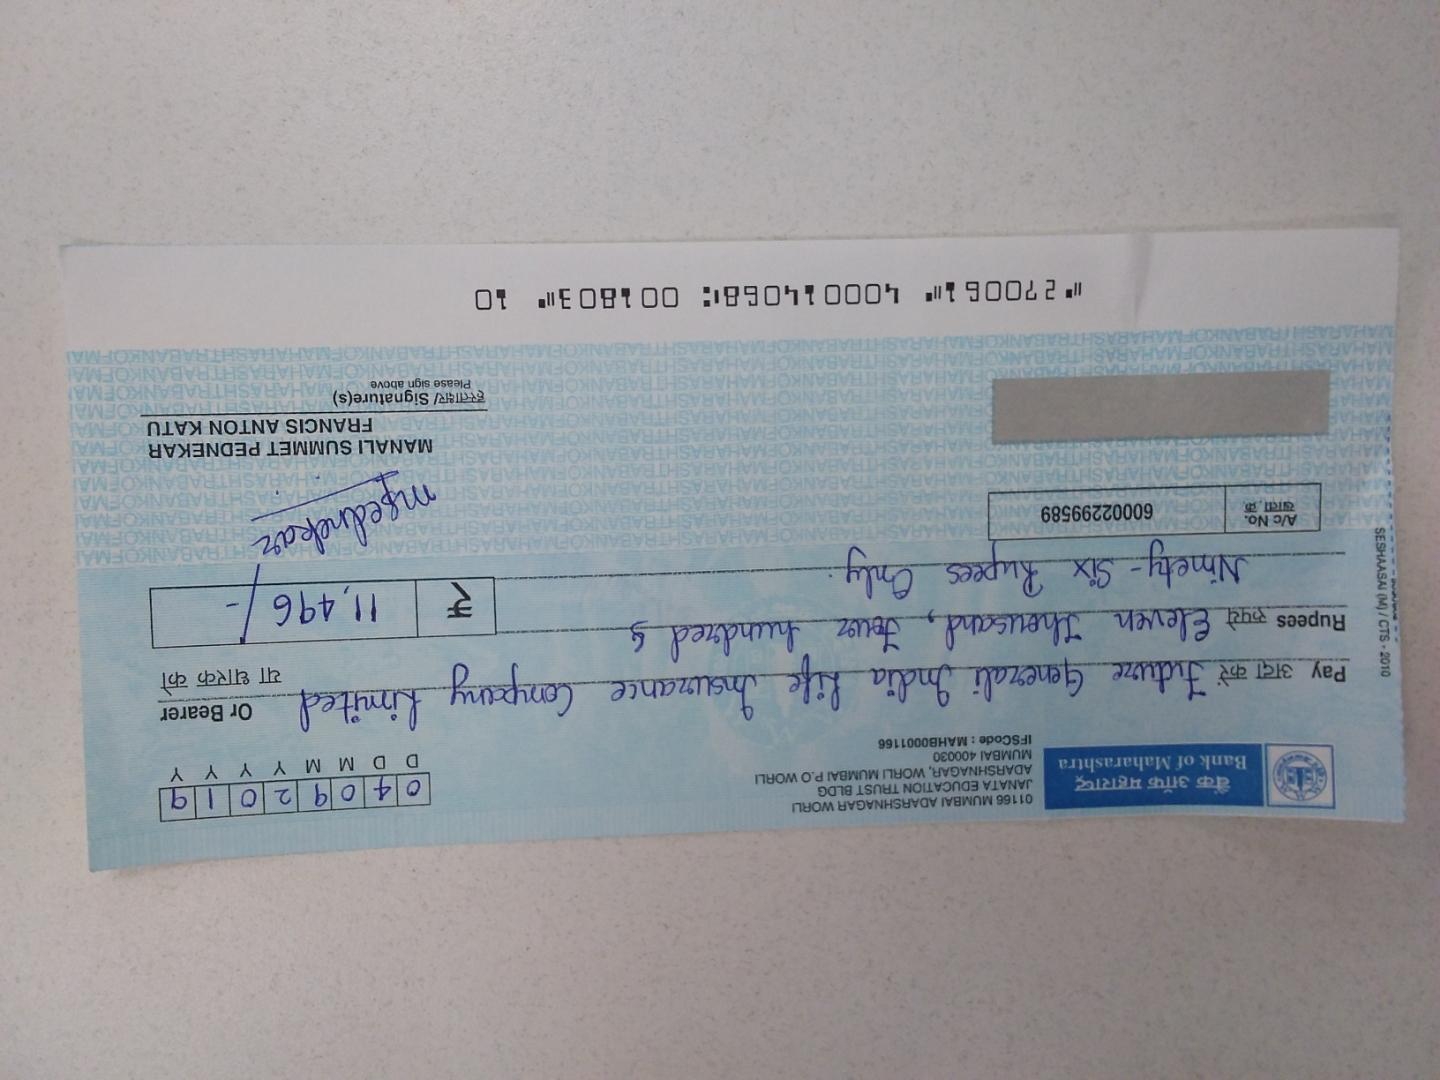 बैंक ऑफ महाराष्ट्र
Bank of Maharashtra
01166 MUMBAI ADARSHNAGAR WORLI
JANATA EDUCATION TRUST BLDG
ADARSHNAGAR, WORLI MUMBAI P.O WORLI
MUMBAI 400030
IFSCode : MAHB0001166
04092019
D D M M Y Y Y Y
Pay अदा करें Future Generali India Life Insurance Company Limited Or Bearer
या धारक को
Rupees रुपये Eleven Thousand, Four hundred &
Ninety-Six Rupees Only.
₹ 11,496/-
A/c No.
खाता क्र. 60002299589
Mpednekar
MANALI SUMMET PEDNEKAR
FRANCIS ANTON KATU
हस्ताक्षर/ Signature(s)
Please sign above
SESHAASAI (M) / CTS - 2010
⑈270061⑈ 400014068⑆ 001803⑈ 10